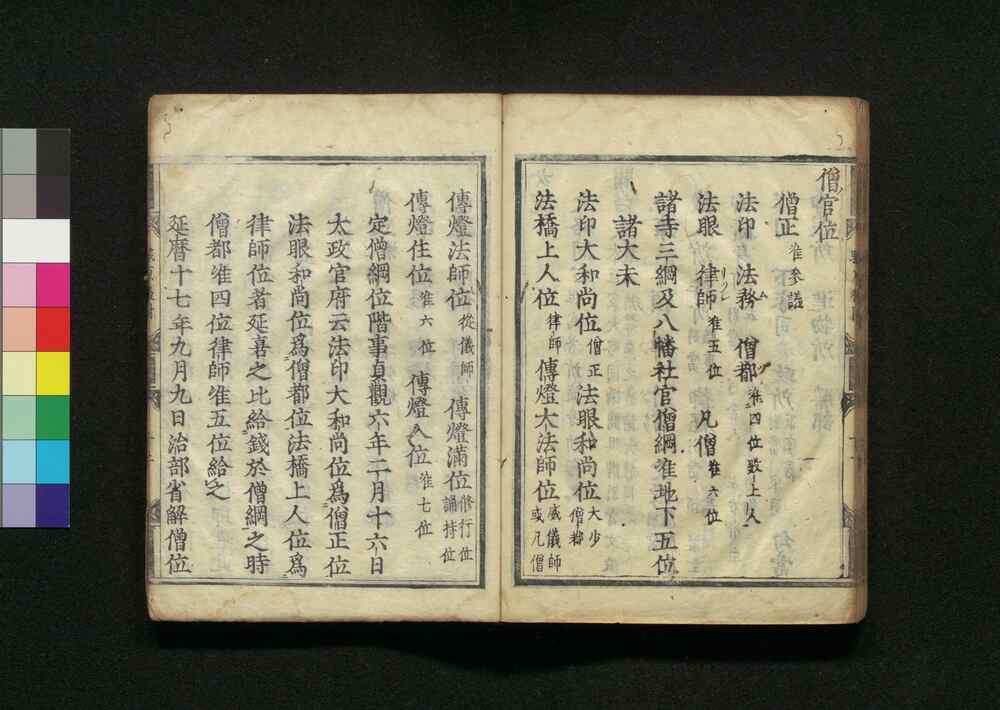 僧官位
僧正 准參議
法印 法務 僧都 准四位敗上人
法眼 律師 准五位 凡僧 准六位
諸寺三綱及八幡社官僧綱准地下五位
諸大夫
法印大和尚位 僧正 法眼和尚位 大少僧都
法橋上人位 律師 傳燈大法師位 威儀師或凡僧
傳燈法師位 從儀師 傳燈滿位 修行位誦持位
傳燈住位 准六位 傳燈入位 准七位
定僧綱位階事貞觀六年二月十六日
太政官府云法印大和尚位爲僧正位
法眼和尚位爲僧都位法橋上人位爲
律師位者延喜之比給錢於僧綱之時
僧都准四位律師准五位給之
延曆十七年九月九日治部省解僧位